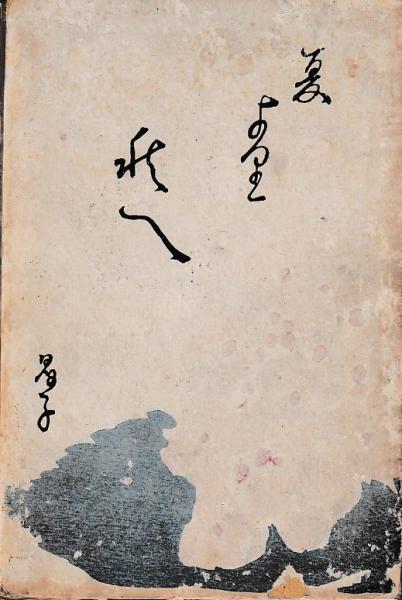 夏
より
秋へ
晶子